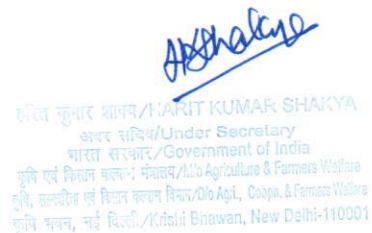 HKShakya
हरित कुमार शाक्य/HARIT KUMAR SHAKYA
अवर सचिव/Under Secretary
भारत सरकार/Government of India
कृषि एवं किसान कल्याण मंत्रालय/M/o Agriculture & Farmers Welfare
कृषि, सहकारिता एवं किसान कल्याण विभाग/D/o Agri., Coopn. & Farmers Welfare
कृषि भवन, नई दिल्ली/Krishi Bhawan, New Delhi-110001